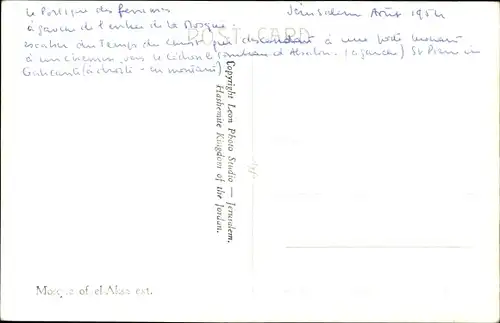 Le Portique des femmes
Jérusalem Août 1954
à gauche de l'entrée de la Mosquée.
POST CARD
escalier du Temps du Christ qui descendait à une porte menant
à un chemin vers le Cédron et tombeau d'Absalon. (à gauche) St Pierre in
Galicante (à droite - en montant)
Copyright Leon Photo Studio — Jerusalem.
Hashemite Kingdom of the Jordan.
Mosque of el-Aksa ext.